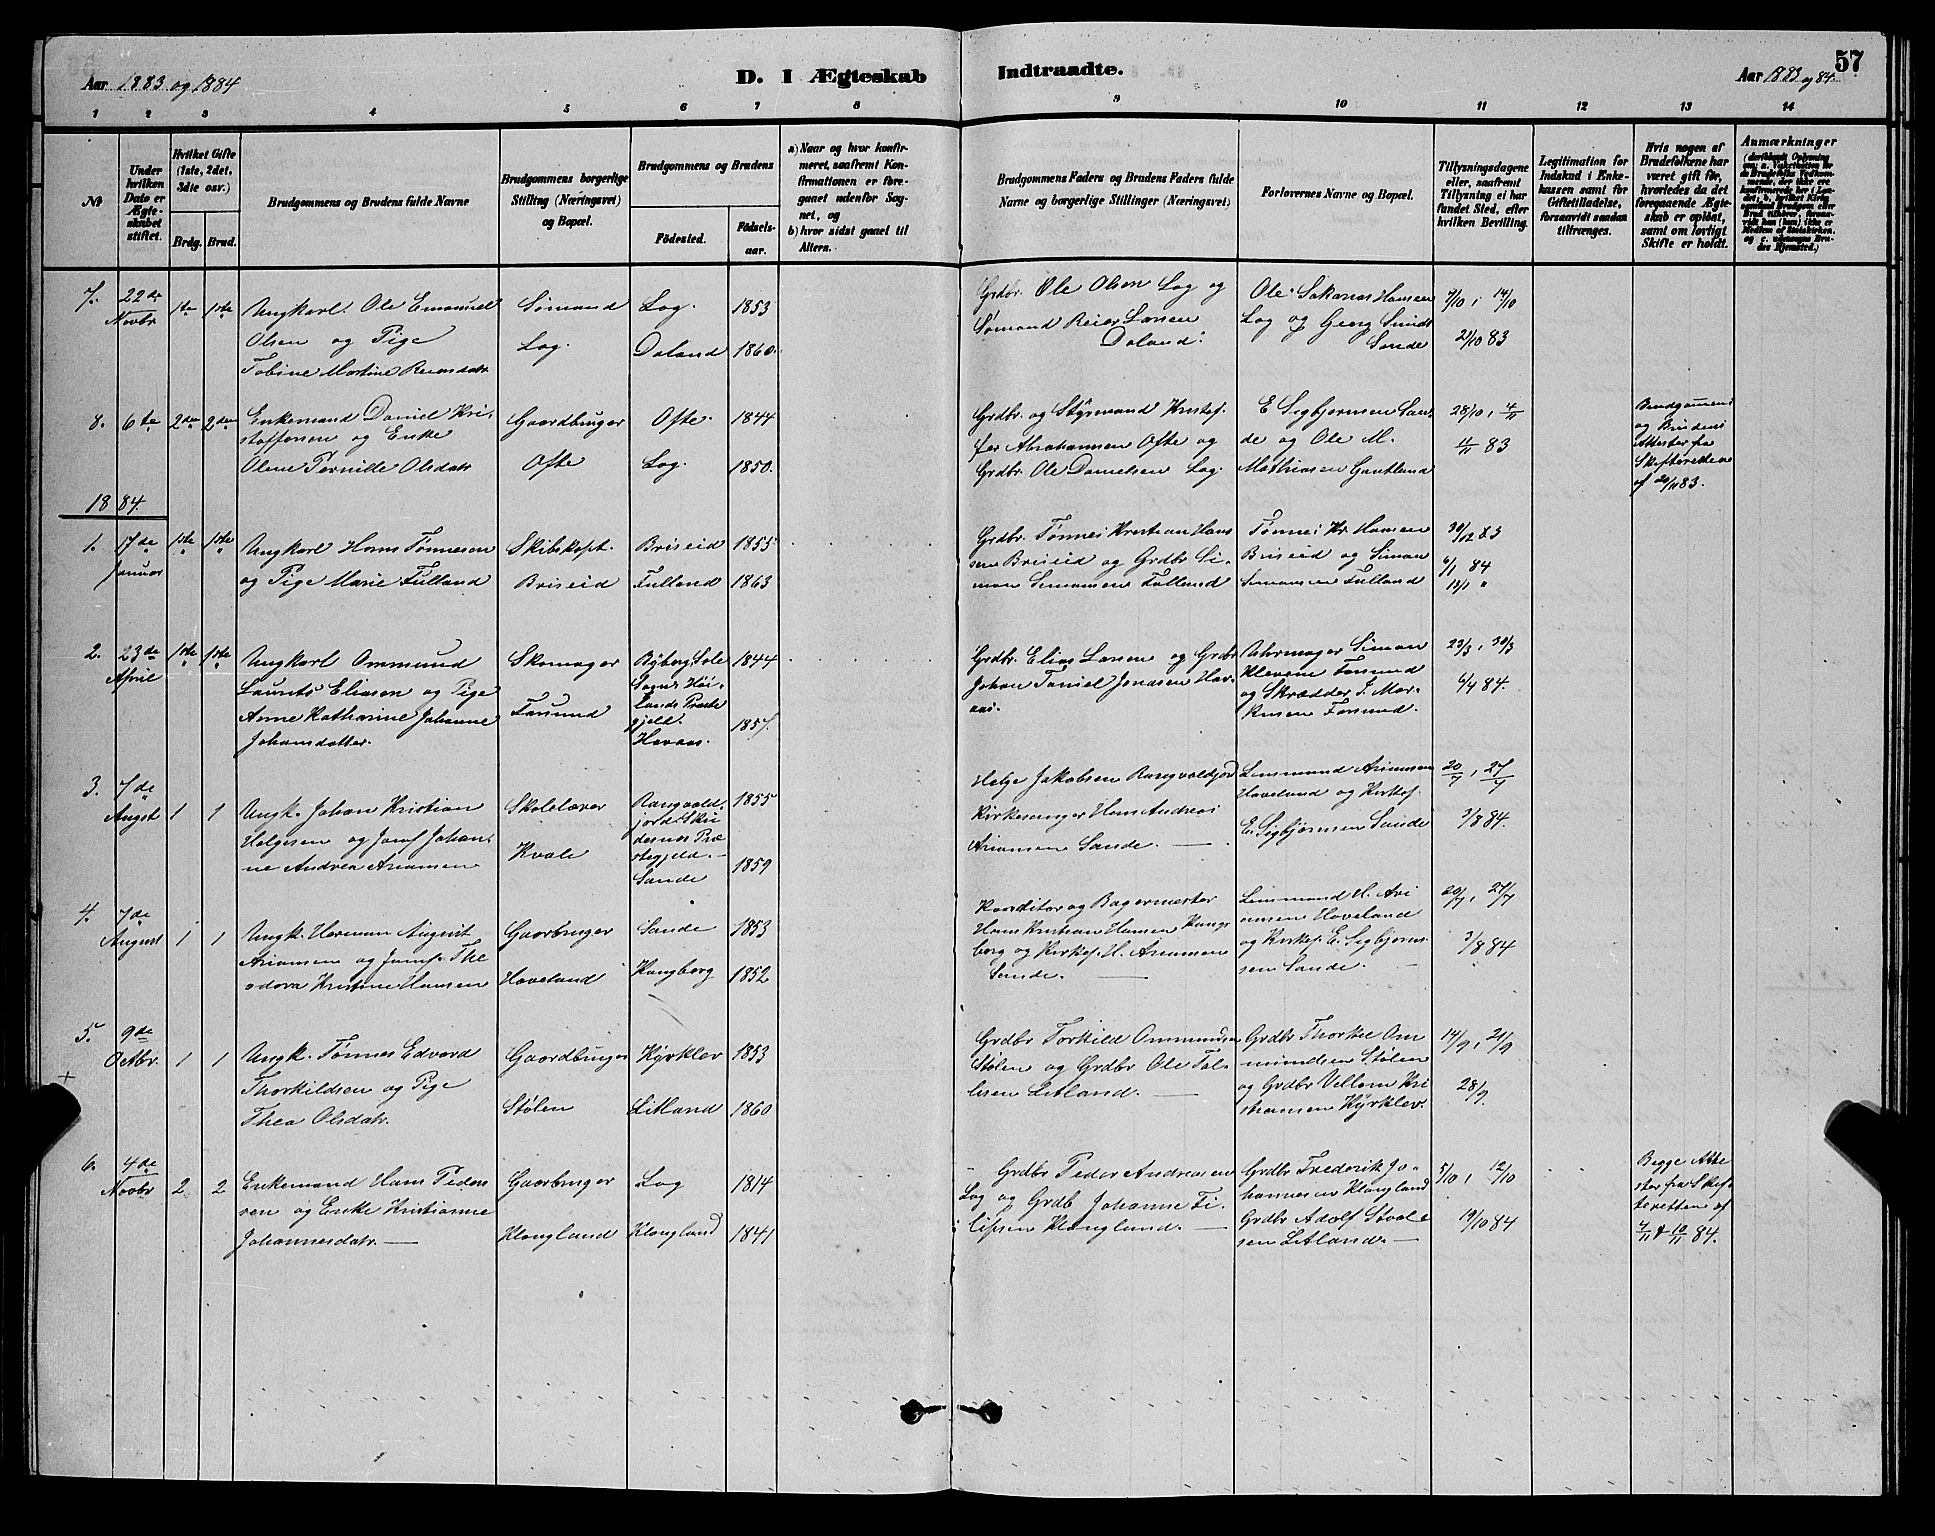 Aar 1883 og 1884
D. I Ægteskab
Indtraadte.
Aar 1883 og 84.
57
1 2 3 4 5 6 7 8 9 10 11 12 13 14
№
Under hvilken Dato er Ægteskabet stiftet.
Hvilket Gifte (1ste, 2det, 3die osv.)
Brdg. Brud.
Brudgommens og Brudens fulde Navne
Brudgommens borgerlige Stilling (Næringsvei) og Bopæl.
Brudgommens og Brudens
Födested.
Födselsaar.
a) Naar og hvor konfirmeret, saafremt Konfirmationen er foregaaet udenfor Sognet, og
b) hvor sidst gaaet til Alters.
Brudgommens Faders og Brudens Faders fulde Navne og borgerlige Stillinger (Næringsvei)
Forlovernes Navne og Bopæl.
Tillysningsdagene eller, saafremt Tillysning ei har fundet Sted, efter hvilken Bevilling.
Legitimation for Indskud i Enkekassen samt for Giftetilladelse, forsaavidt saadan tiltrænges.
Hvis nogen af Brudefolkene har været gift før, hvorledes da det foregaaende Ægteskab er opløst, samt om lovligt Skifte er holdt.
Anmærkninger
7. 22de Novbr 1ste 1ste
Ungkarl. Ole Emanuel
Olsen og Pige
Tobine Martine Reiersdatr
Sømand
Log.
Log. 1853
Doland 1860.
Grdbr. Ole Olsen Log og
Sømand Reier Larsen
Doland.
Ole Hansen
Log og Georg
Sande
7/10, 14/10
21/10 83
8. 6te 2den 2den
Enkemand Daniel Kri-
stoffersen og Enke
Olene Pernille Olsdatr
Gaardbruger
Ofte
Ofte. 1844
Log. 1850.
Grdbr. og Styrmand Kristof-
fer Abrahamsen Ofte og
Grdbr. Ole Danielsen Log.
E Sigbjørnsen San-
de og Ole M.
Mathiasen Gautland
28/10, 4/11
11/11 83
Brudgommens
og Brudens
Attester fra
Skifteretten
af 20/11 83.
1884.
1. 17de Januar 1ste 1ste
Ungkarl Hans Tønnesen
og Pige Marie Fulland
Skibskapt.
Briseid
Briseid 1855
Fulland 1863
Grdbr. Tønnes Kristian Han-
sen Briseid og Grdbr Si-
mon Simonsen Fulland
Tønnes Kr. Hansen
Briseid og Simon
Simonsen Fulland
30/12 83
6/1 84
13/1 "
2. 23de April 1ste 1ste
Ungkarl Ommund
Laurits Eliasen og Pige
Anne Katharine Johanne
Johansdatter.
Skomager
Farsund
Byberg Sole
Sogn Høi-
lands Præste
gjeld.
Havaas.
1844
1857.
Grdbr. Elias Larsen og Grdbr
Johan Taniel Jonasen Hav-
aas.
Uhrmager Simon
Klevene Farsund
og Skrædder J. Mar-
kusen Farsund.
23/3, 30/3
6/4 84.
3. 7de Augst 1 1
Ungk. Johan Kristian
Helgesen og Jomf. Johan-
ne Andrea Ariansen
Skolelærer
Kvale
Rangvald-
jord Sku
desnes Præ
stegjeld.
Sande
1855
1859
Helge Jakobsen Rangvaldjord
Kirkesanger Hans Andreas
Ariansen Sande.
Lensmand Ariansen
Hoveland og Kirkes.
E. Sigbjørnsen Sande
20/7, 27/7
3/8 84.
4. 7de August 1 1
Ungk. Herman August
Ariansen og Jomf. The
odora Kristine Hansen
Gaarbruger
Hoveland
Sande 1853
Kongberg 1852
Konditor og Bagermester
Hans Kristian Hansen Kongs
berg og Kirkes. H. Ariansen
Sande.
Lensmand H. Ari
ansen Hoveland
og Kirkes. E. Sigbjørn-
sen Sande.
20/7, 27/7
3/8 84
5. 9de Octbr. 1 1
Ungk. Tønnes Edvard
Thorkildsen og Pige
Thea Olsdatr.
Gaardbruger
Stølen
Kyrklev 1853
Litland 1860
Grdbr Torkild Ommundsen
Stølen og Grdbr Ole Tol-
lisen Litland.
Grdbr Thorkel Om
mundsen Stølen
og Grdbr Vellom Kri
stiansen Kyrklev.
14/9, 21/9
28/9
6. 4de Novbr 2 2
Enkemand Hans Peder-
sen og Enke Kristianne
Johannesdatr.
Gaarbruger
Klongland
Log 1814
Klongland 1841
Grdbr Peder Andreasen
Log og Grdb Johanne Fi-
lipsen Klongland.
Grdbr Frederik Jo-
hannesen Klongland
Grdbr Adolf Staale
sen Litland.
5/10, 12/10
19/10 84
Begge Atte
ster fra Skif-
teretten af
4/11 & 10/11 84.